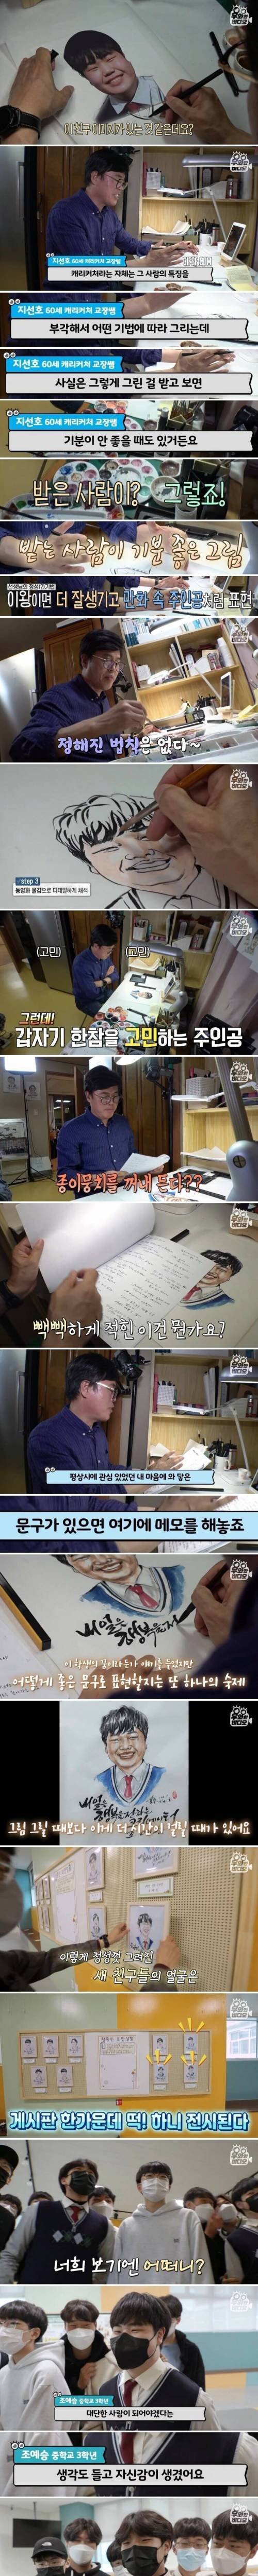 이 친구 이미지가 있는 것 같은데요?
지선호 60세 캐리커처 교장쌤
캐리커처라는 자체는 그 사람의 특징을
지선호 60세 캐리커처 교장쌤
부각해서 어떤 기법에 따라 그리는데
지선호 60세 캐리커처 교장쌤
사실은 그렇게 그린 걸 받고 보면
지선호 60세 캐리커처 교장쌤
기분이 안 좋을 때도 있거든요
받은 사람이? 그렇죠!
받는 사람이 기분 좋은 그림
이왕이면 더 잘생기고 만화 속 주인공처럼 표현
정해진 법칙은 없다~
step 3
동양화 물감으로 디테일하게 채색
(고민) (고민)
그런데!
갑자기 한참을 고민하는 주인공
종이뭉치를 꺼내 든다??
빽빽하게 적힌 이건 뭔가요?
평상시에 관심 있었던 내 마음에 와 닿은
문구가 있으면 여기에 메모를 해놓죠
내일은
어떻게 좋은 문구로 표현할지는 또 하나의 숙제
내일은
그림 그릴 때보다 이게 더 시간이 걸릴 때가 있어요
이렇게 정성껏 그려진
새 친구들의 얼굴은
게시판 한가운데 떡! 하니 전시된다
너희 보기엔 어떠니?
조예승 중학교 3학년
대단한 사람이 되어야겠다는
조예승 중학교 3학년
생각도 들고 자신감이 생겼어요